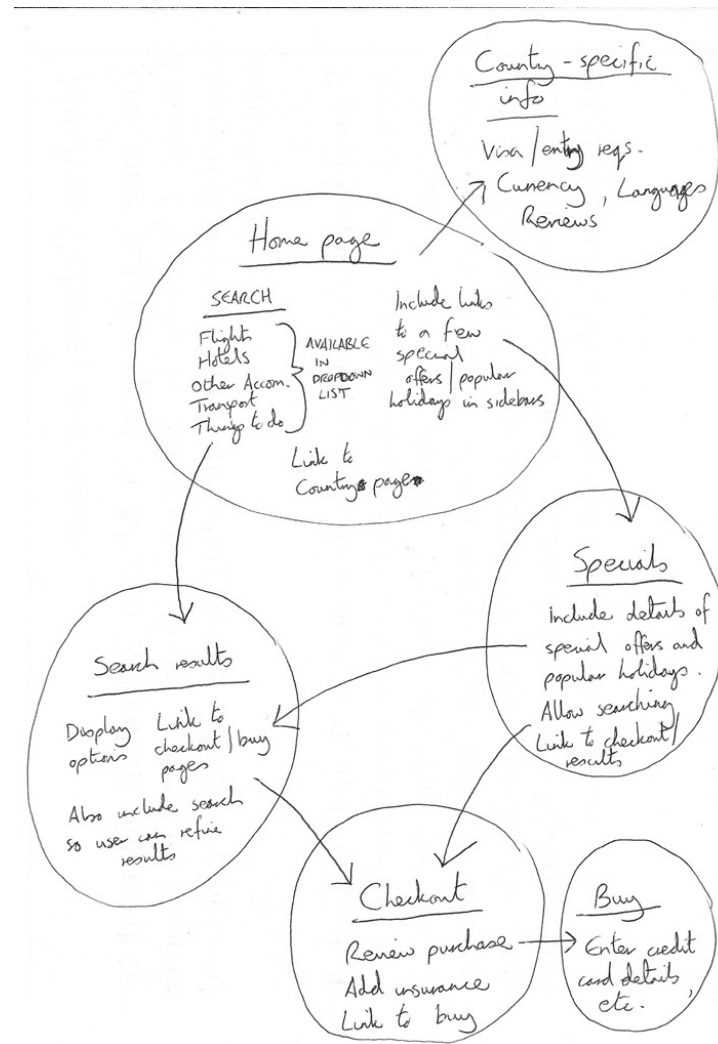 Country-specific
info
Visa/entry reqs.
Currency, Languages
Reviews
Home page
SEARCH
Flights
Hotels
Other Accom.
Transport
Things to do
AVAILABLE
IN
DROPDOWN
LIST
Include links
to a few
special
offers/popular
holidays in sidebars
Link to
Country page
Specials
Include details of
special offers and
popular holidays.
Allow searching
Link to checkout/
results
Search results
Display
options
Link to
checkout/buy
pages
Also include search
so user can refine
results
Checkout
Review purchase
Add insurance
Link to buy
Buy
Enter credit
card details,
etc.